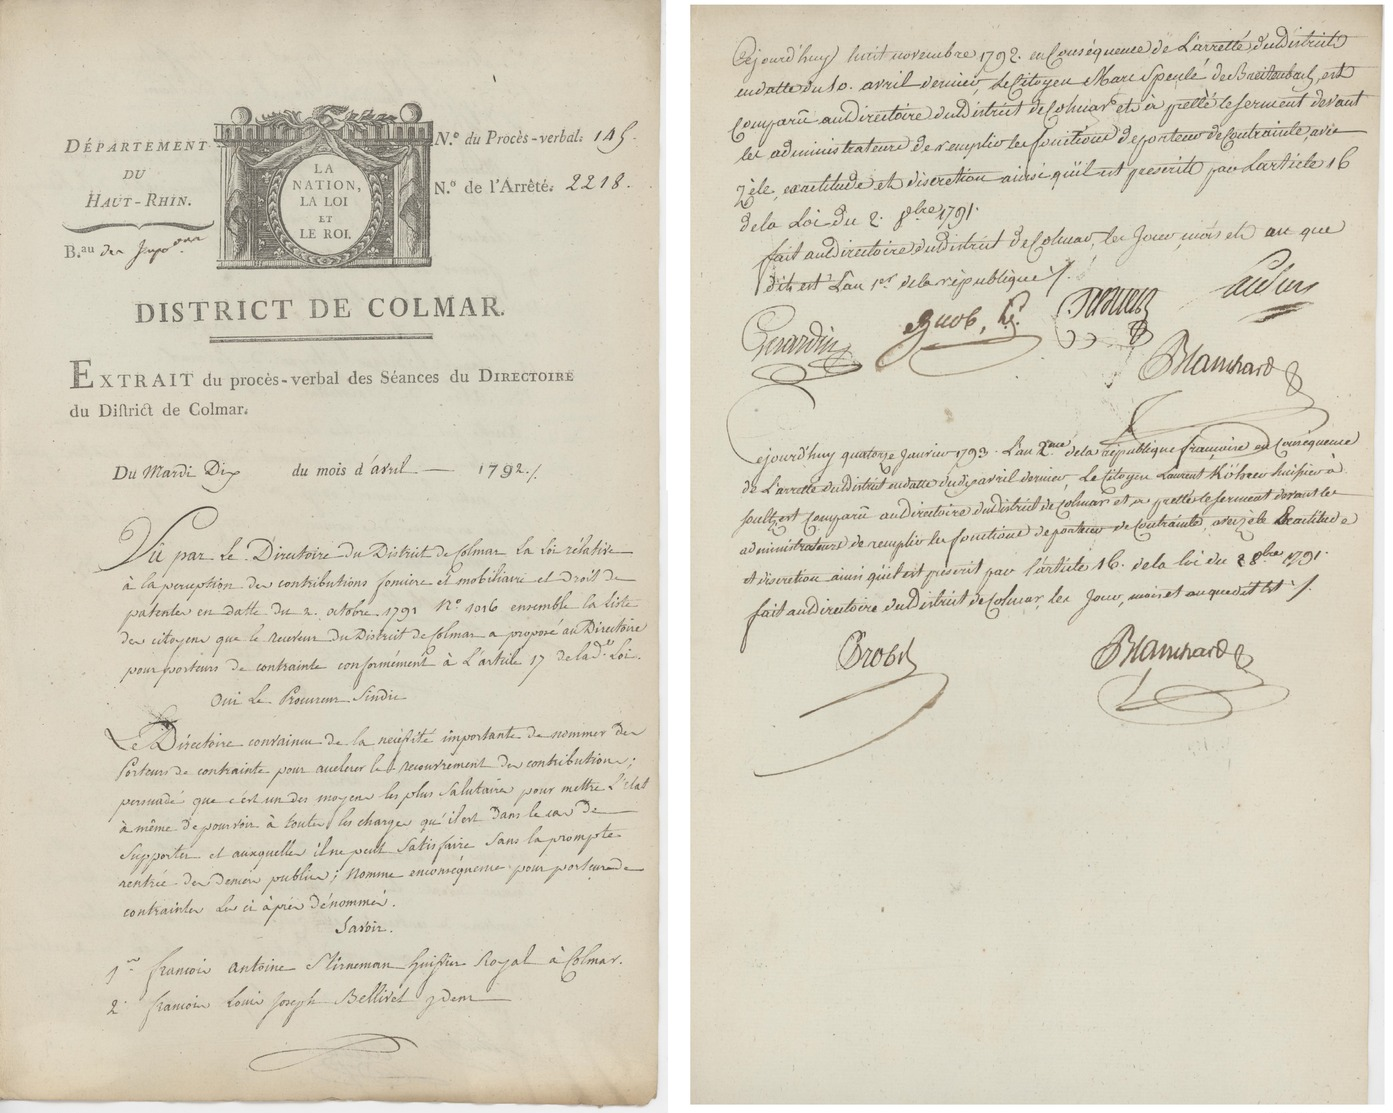 DÉPARTEMENT
DU
HAUT-RHIN.
B.au des Impo.ons
LA
NATION,
LA LOI
ET
LE ROI.
N.o du Procès-verbal: 145.
N.o de l'Arrêté: 2218.
DISTRICT DE COLMAR.
EXTRAIT du procès-verbal des Séances du DIRECTOIRE
du District de Colmar.
Du Mardi Dix du mois d'avril 1792 ./.
Vû par Le Directoire du District de Colmar La Loi rélative
à la perception des contributions fonciere et mobiliaire et droit de
patentes en datte du 2. octobre 1791 N.o 1016 ensemble la Liste
des citoyens que le receveur du District de Colmar a proposé au Directoire
pour porteurs de contrainte conformément à L'article 17 de la d.e Loi.
Oui Le Procureur Sindic
Le Directoire convaincu de la nécessité importante de nommer des
Porteurs de contrainte pour accelerer le recouvrement des contributions;
persuadé que c'est un des moyens les plus Salutaires pour mettre L'Etat
à même de pourvoir à toutes les charges qu'il est dans le cas de
Supporter et auxquelles il ne peut Satisfaire Sans la prompte
rentrée des Deniers publics; Nomme en conséquence pour porteurs de
contraintes Les ci après dénommés.
Savoir.
1.er francois antoine Stirneman huissier Royal à Colmar.
2. francois Louis Joseph Bellivet ydem
Cejourd'huy huit novembre 1792. en Conséquence de L'arretté du district
en datte du 10. avril dernier, Le Citoyen Marc Speulé de Breitenbach, est
Comparû au directoire du district de Colmar et à pretté le serment devant
les administrateurs de remplir les fonctions de porteur de Contrainte, avec
zéle, exactitude et discretion ainsi qu'il est prescrit par L'article 16
de la Loi du 2. 8bre 1791.
fait au directoire du district de Colmar, les Jour, mois et an que
dit est L'an 1er de la république ./.
Gerardin
Blanchard
Cejourd'huy quatorze Janvier 1793. L'an 2eme de la république francaise en Conséquence
de L'arretté du district en datte du dix avril dernier, Le Citoyen Laurent Köhrer huissier à
Soultz est Comparû au directoire du district de Colmar et a pretté le serment devant les
administrateurs de remplir les fonctions de porteur de Contrainte, avec zéle Exactitude
et discretion ainsi qu'il est prescrit par l'article 16. de la loi du 2 8bre 1791.
fait au Directoire du district de Colmar, les Jour, mois et an que dit est ./.
Blanchard